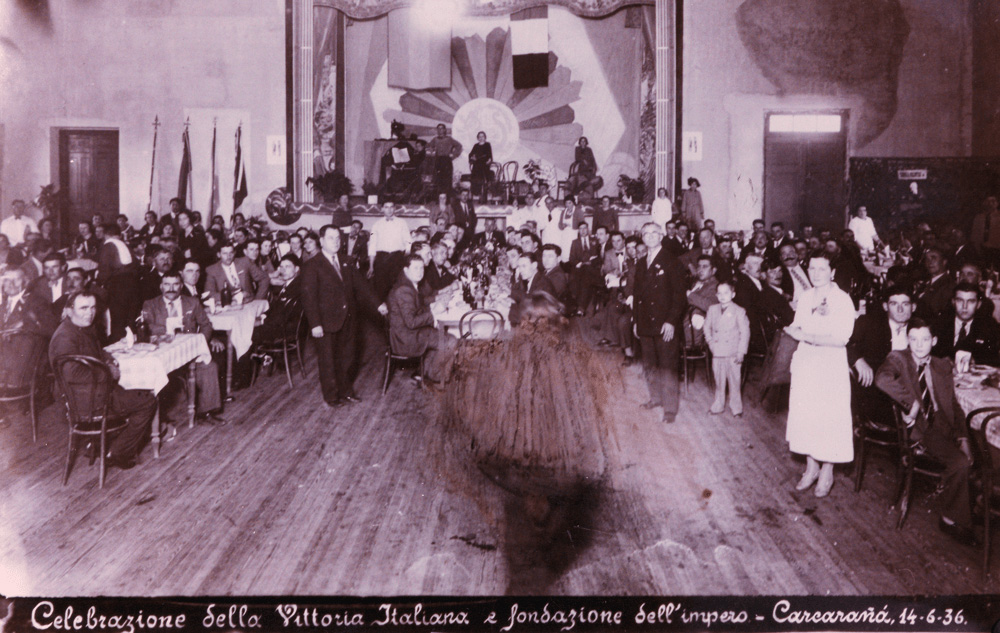 Celebrazione della Vittoria Italiana e fondazione dell'impero - Carcarañá, 14-6-36.